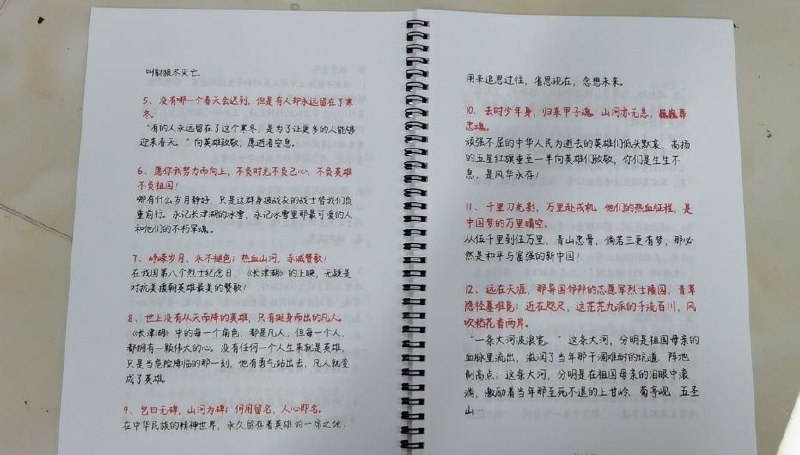 叫豺狼尽灭亡.
5、没有哪一个春天会迟到，但是有人却永远留在了寒
冬。
“有的人永远留在了这个寒冬，是为了让更多的人能够
迎来春天。”向英雄致敬，愿逝者安息。
6、愿你我努力而向上，不负时光不负己心，不负英雄
不负祖国！
哪有什么岁月静好，只是这群身披战衣的战士替我们负
重前行。永记长津湖的冰雪，永记冰雪里那最可爱的人
和他们的不朽军魂。
7、峥嵘岁月，永不褪色；热血山河，赤诚赞歌！
在我国第八个烈士纪念日，《长津湖》的上映，无疑是
对抗美援朝英雄最美的赞歌！
8、世上没有从天而降的英雄，只有挺身而出的凡人。
《长津湖》中的每一个角色，都是凡人，但每一个人，
都拥有一颗伟大的心。没有任何一个人生来就是英雄，
只是当危险降临的那一刻，他有勇气站出去，凡人就变
成了英雄。
9、岂曰无碑，山河为碑；何用留名，人心即名。
在中华民族的精神世界，永久留存着英雄的一席之地，
用来追思过往，省思现在，念思未来。
10、去时少年身，归来甲子魂。山河亦无恙，巍巍葬
忠魂。
顽强不屈的中华人民为逝去的英雄们低头默哀，高扬
的五星红旗垂至一半向英雄们致敬，你们是生生不
息，是风华永存！
11、千里刀光影，万里赴戎机。他们的热血征程，是
中国梦的万里晴空。
从伍十里到伍万里，青山忠骨，倘若三更有梦，那必
然是和平与富强的新中国！
12、远在天涯，那异国邻邦的志愿军烈士陵园，青草
隐径墓难觅；近在咫尺，这茫茫九派的千流百川，风
吹稻花香两岸。
“一条大河波浪宽。”这条大河，分明是祖国母亲的
血脉里流出，滋润了当年那干涸难耐的坑道、阵地
制高点；这条大河，分明是在祖国母亲的泪眼中滚
淌，激励着当年那至死不退的上甘岭、菊亭岘、五圣
山